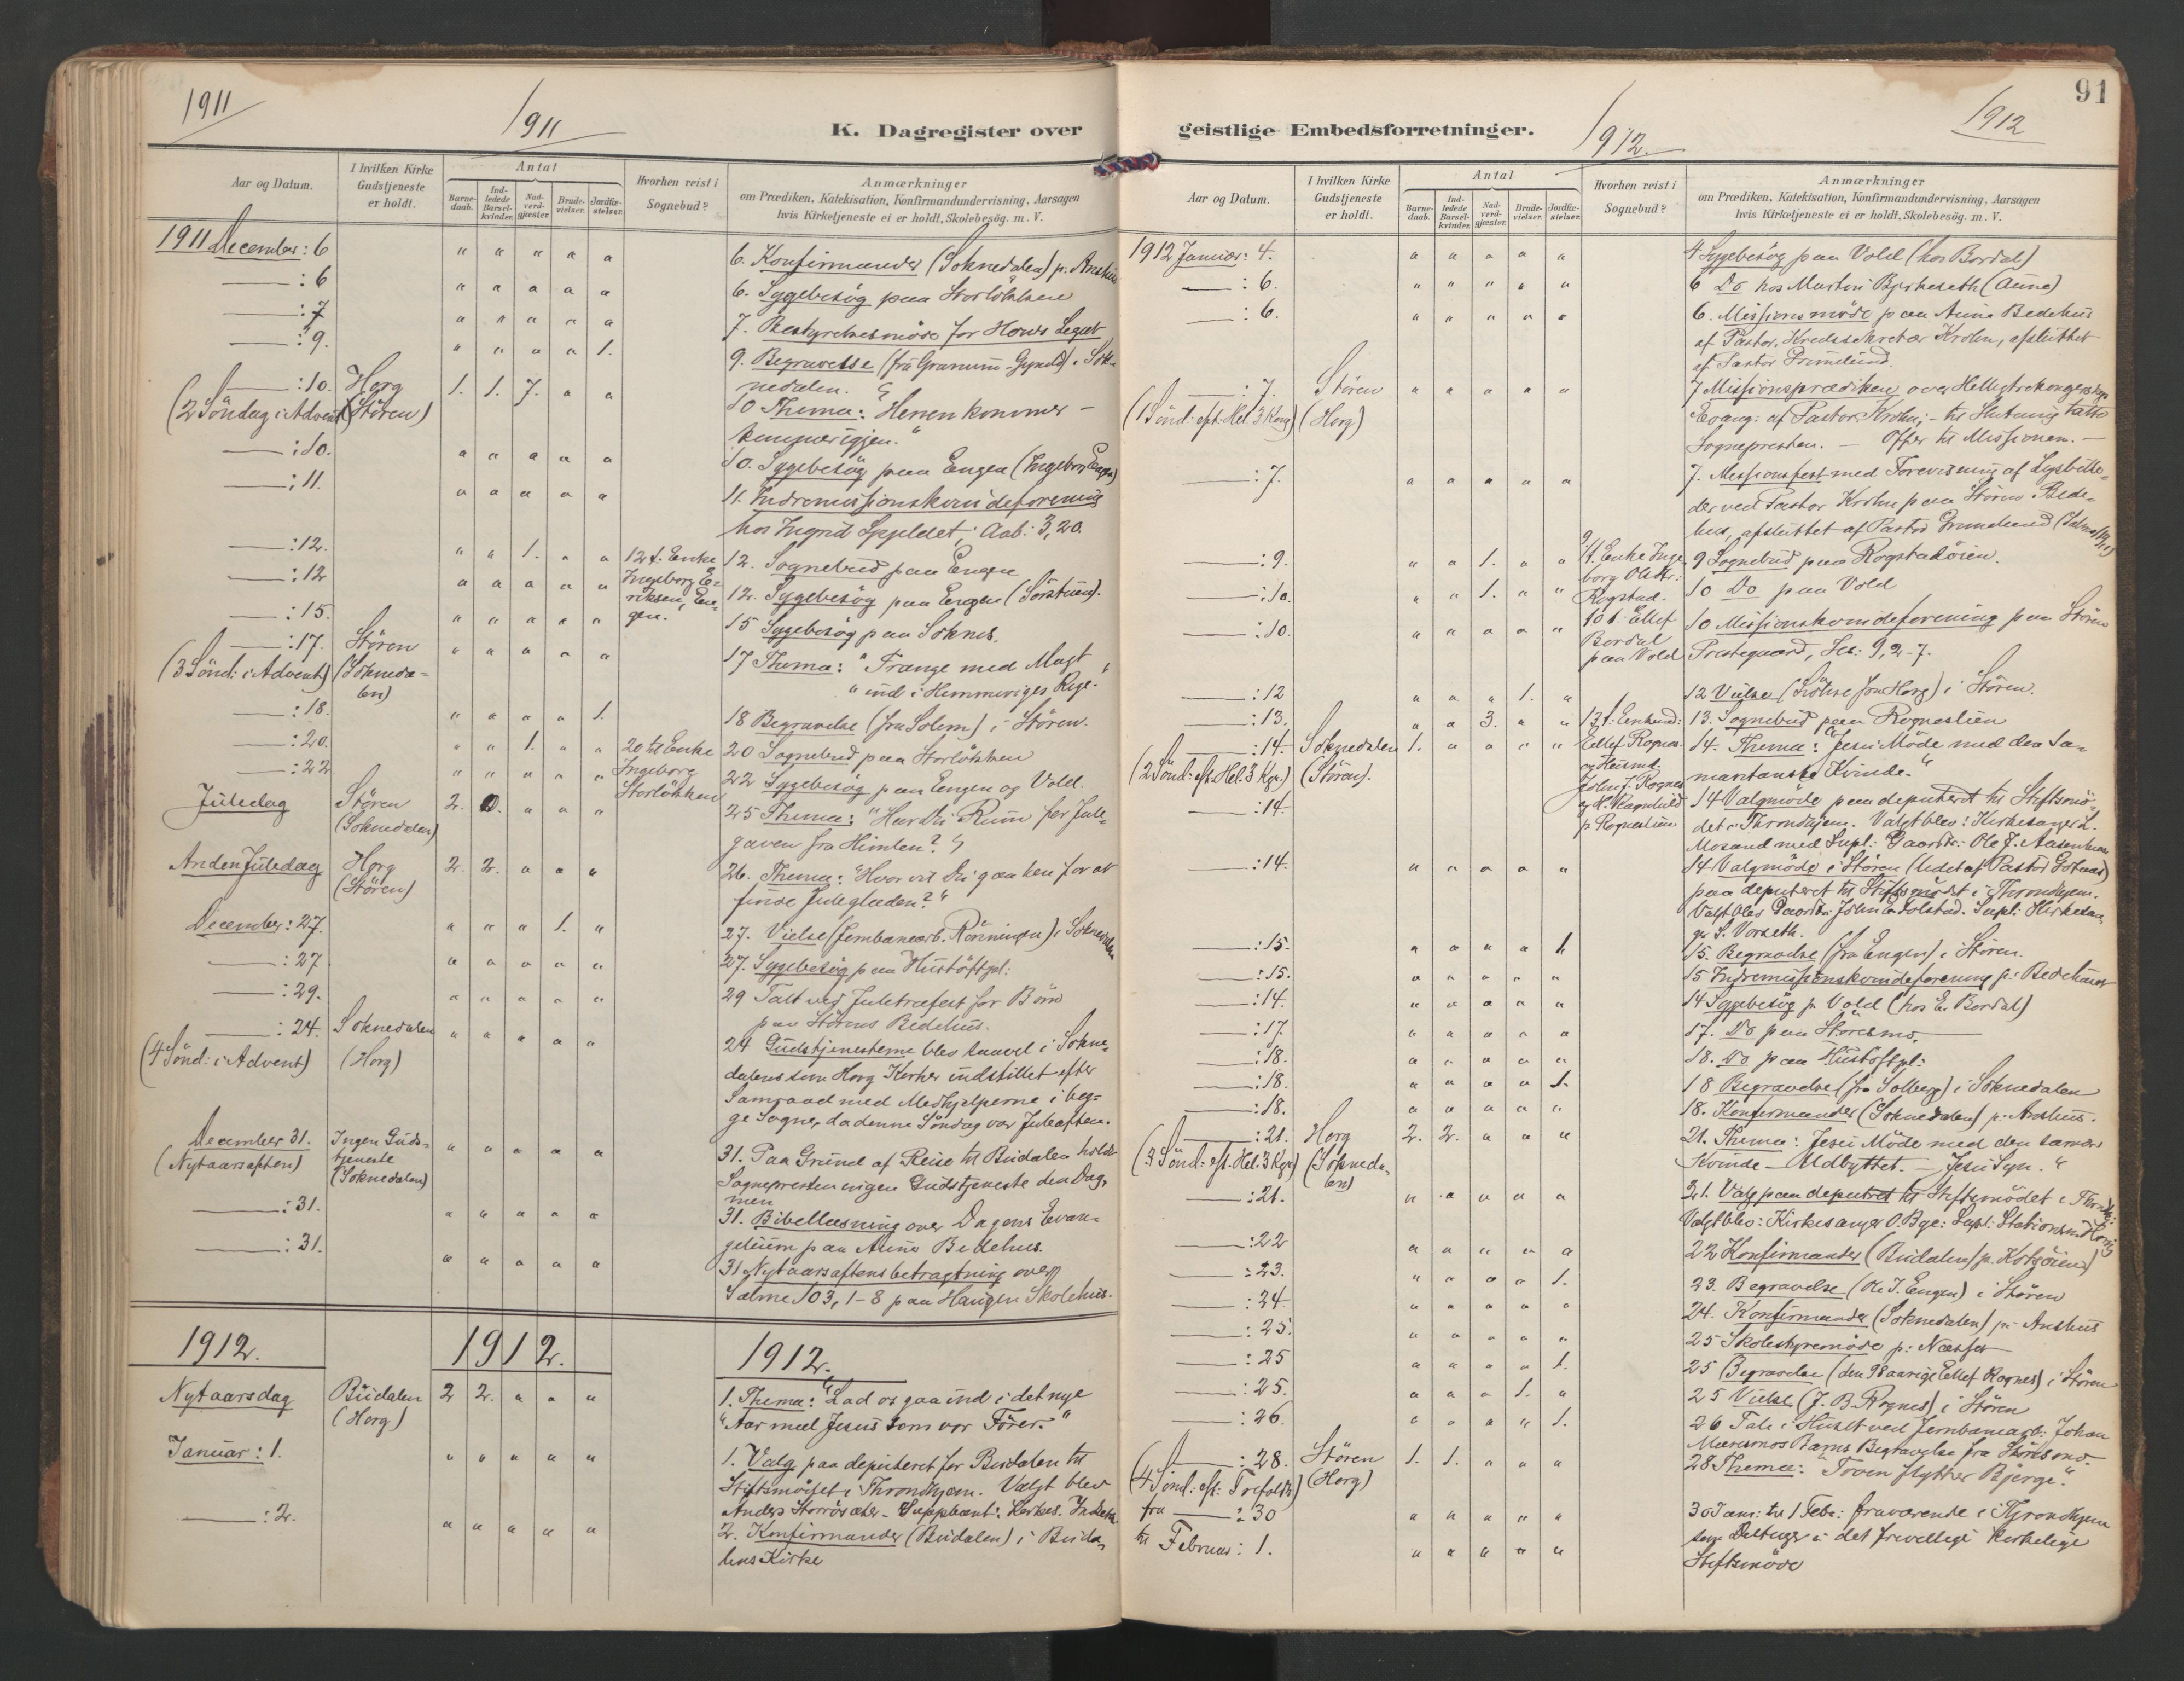 1911
1911
K. Dagregister over
Aar og Datum.
I hvilken Kirke Gudstjeneste er holdt.
Antal
Barnedaab.
Indledede Barselkvinder.
Nadverdgjæster.
Brudevielser.
Jordfæstelser.
Hvorhen reist i Sognebud?
Anmærkninger
om Prædiken, Katekisation, Konfirmandundervisning, Aarsagen
hvis Kirketjeneste ei er holdt, Skolebesög. m. V.
1911 December: 6 " " " " " 6. Konfirmander (Soknedalen) p.
: 6 " " " " " 6. Sygebesög paa Storlökken
: 7 " " " " " 7. Bestyrelsesmöde for Hovs Legat
: 9. " " " " 1. 9. Begravelse (fra Granum) i Sok-
nedalen.
: 10. Horg 1. 1. 7. " "
(2 Söndag i Advent) (Stören) 10 Thema: "Herren kommer -
kommer igjen."
: 10. " " " " " 10. Sygebesög paa Engen (Ingeborg Engen)
: 11. " " " " " 11. Indremissionskvindeforening
hos Ingrid Spjeldet; Aab: 3,20.
: 12. " " 1. " " 12 t. Enke 12. Sognebud paa Engen
: 12 " " " " " Ingeborg E- 12. Sygebesög paa Engen (Sörstuen).
riksen, En-
gen.
: 15. " " " " " 15 Sygebesög paa Soknes.
: 17. Stören " " " " " 17 Thema: "Trænge med Magt
(3 Sönd: i Advent) (Soknedalen) "ind i Himmeriges Rige."
: 18. " " " " 1. 18 Begravelse (fra Solem) i Stören.
: 20. " " 1. " " 20 til Enke 20 Sognebud paa Storlökken
: 22 " " " " " Ingeborg 22 Sygebesög paa Engen og Vold.
Storlökken
Juledag Stören 2. " " " 25 Thema: "Har Du Rum for Jule-
(Soknedalen) gaven fra Himlen?"
Anden Juledag Horg 2. 2. " " " 26. Thema: "Hvor vil Du gaa hen for at
(Stören) finde Juleglæden?"
December: 27. " " " 1. " 27. Vielse (Jernbanearb. Rönningen) i Soknedalen
: 27 " " " " " 27. Sygebesög paa Hustöftpl:
: 29. " " " " " 29 Talt ved Juletræfest for Börn
paa Störens Bedehus.
: 24. Soknedalen " " " " "
(4 Sönd: i Advent) (Horg) 24 Gudstjenesterne blev saavel i Sokne-
dalens som Horg Kirker indstillet efter
Samraad med Medhjelperne i beg-
ge Sogne, da denne Söndag var Juleaften.
December 31. Ingen Guds- " " " " " 31. Paa Grund af Reise til Budalen holdt
(Nytaarsaften) tjeneste Sognepresten ingen Gudstjeneste den Dag,
(Soknedalen) men
: 31. " " " " " 31. Bibellæsning over Dagens Evan-
gelium paa Aunes Bedehus.
: 31. " " " " " 31 Nytaarsaftensbetragtning over
Salme 103, 1-8 paa Haugen Skolehus.
1912. 1912. 1912.
Nytaarsdag Budalen 2 2. " " " 1. Thema: "Lad os gaa ind i det nye
(Horg) "Aar med Jesus som vor Förer."
Januar: 1. " " " " " 1. Valg paa deputeret for Budalen til
Stiftsmödet i Throndhjem. Valgt blev
Anders Storrösæter - Suppleant: Kirkes.
: 2. " " " " " 2. Konfirmander (Budalen) i Buda-
lens Kirke
91
1912
1912.
geistlige Embedsforretninger.
Aar og Datum.
I hvilken Kirke Gudstjeneste er holdt.
Antal
Barnedaab.
Indledede Barselkvinder.
Nadverdgjæster.
Brudevielser.
Jordfæstelser.
Hvorhen reist i Sognebud?
Anmærkninger
om Prædiken, Katekisation, Konfirmandundervisning, Aarsagen
hvis Kirketjeneste ei er holdt, Skolebesög. m. V.
1912 Januar: 4. " " " " " 4 Sygebesög paa Vold (hos Bordal)
: 6. " " " " " 6 Do hos Martin Bjerkeseth (Aune)
: 6. " " " " " 6. Missionsmöde paa Aunes Bedehus
af Pastor, Kredssekretær Krohn, afsluttet
af Pastor Grimelund.
: 7. Stören " " " " " 7 Missionsprædiken over Helligtrekongers
(1 Sönd: eft: Hel. 3 Kong) (Horg) Evang: af Pastor Krohn; - til Slutning talte
Sognepresten. - Offer til Missionen. -
: 7. " " " " " 7. Missionsfest med Forevisning af Lysbille-
der ved Pastor Krohn paa Störens Bede-
hus, afsluttet af Pastor Grimelund
: 9. " " 1. " " 9/1 t. Enke Inge- 9 Sognebud paa Rogstadöien.
borg Olsdtr:
: 10. " " 1. " " Rogstad. 10 Do paa Vold
: 10. " " " " " 10 t. Ellef 10 Missionskvindeforening paa Stören
Bordal
paa Vold Prestegaard, Jes: 9, 2-7.
: 12 " " " 1. " 12 Vielse (Lökse fra Horg) i Stören.
: 13. " " 3. " " 13 t. Enkemd: 13. Sognebud paa Rogneslien
: 14. Soknedalen 1. " " " " Ellef Rognes 14. Thema: "Jesu Möde med den sa-
(2 Sönd: ef. Hel. 3 Kgr.) (Stören). og Husmd. maritanske Kvinde."
John J. Rognes
: 14. og K. Ragnhild 14 Valgmöde paa deputeret til Stiftsmö-
p. Rogneslien det i Throndhjem. Valgt blev: Kirkesanger L.
Mosand med Supl: Gaardbr. Ole J. Aasenhaug
: 14. " " " " " 14 Valgmöde i Stören (ledet af Pastor Gotaas)
paa deputeret til Stiftsmödet i Throndhjem.
Valgt blev Gaardbr. John Tolstad. Supl: Kirkesan-
ger S. Vorseth.
: 15. " " " " 1. 15. Begravelse (fra Engen) i Stören.
: 15. " " " " " 15 Indremissionskvindeforening p: Bedehuset
: 14. " " " " " 14 Sygebesög p. Vold (hos E. Bordal)
: 17. " " " " " 17. Do paa Störesmo.
: 18. " " " " " 18. Do paa Hustöftpl:
: 18. " " " " 1. 18 Begravelse (fra Solberg) i Soknedalen
: 18. " " " " " 18. Konfirmander (Soknedalen) p. Anshus.
: 21. Horg 2. 2. " " " 21. Thema: Jesu Möde med den samar:
(3 Sönd: ef. Hel. 3 Kgr) (Soknedalen) Kvinde - Udbyttet. - Jesu Syn."
: 21. " " " " " 21. Valg paa deputeret til Stiftsmödet i Thrdhj:
Valgt blev: Kirkesanger O. Bye: Supl: Stationsmd
: 22 " " " " " 22 Konfirmander (Budalen) p. Kotsöien)
: 23. " " " " 1. 23. Begravelse (Ole J. Engen) i Stören
: 24 " " " " " 24. Konfirmander (Soknedalen) p. Anshus
: 25. " " " " " 25 Skolestyremöde p: Næsset
: 25 " " " " 1. 25 Begravelse (den 98 aarige Ellef Rognes) i Stören
: 25. " " " 1. " 25 Vielse (J. B. Rognes) i Stören
: 26. " " " " 1. 26 Tale i Huset ved Jernbanearb: Johan
Moresmos Barns Begravelse fra Störesmo.
: 28. Stören 1. 1. " " " 28 Thema: "Troen flytter Bjerge".
(4 Sönd: ef: Trefoldh) (Horg)
fra : 30 " " " " " 30 Jan: til 1 Feb: fraværende i Throndhjem
til Februar: 1. " " " " " som Deltager i det frivillige kirkelige
Stiftsmöde